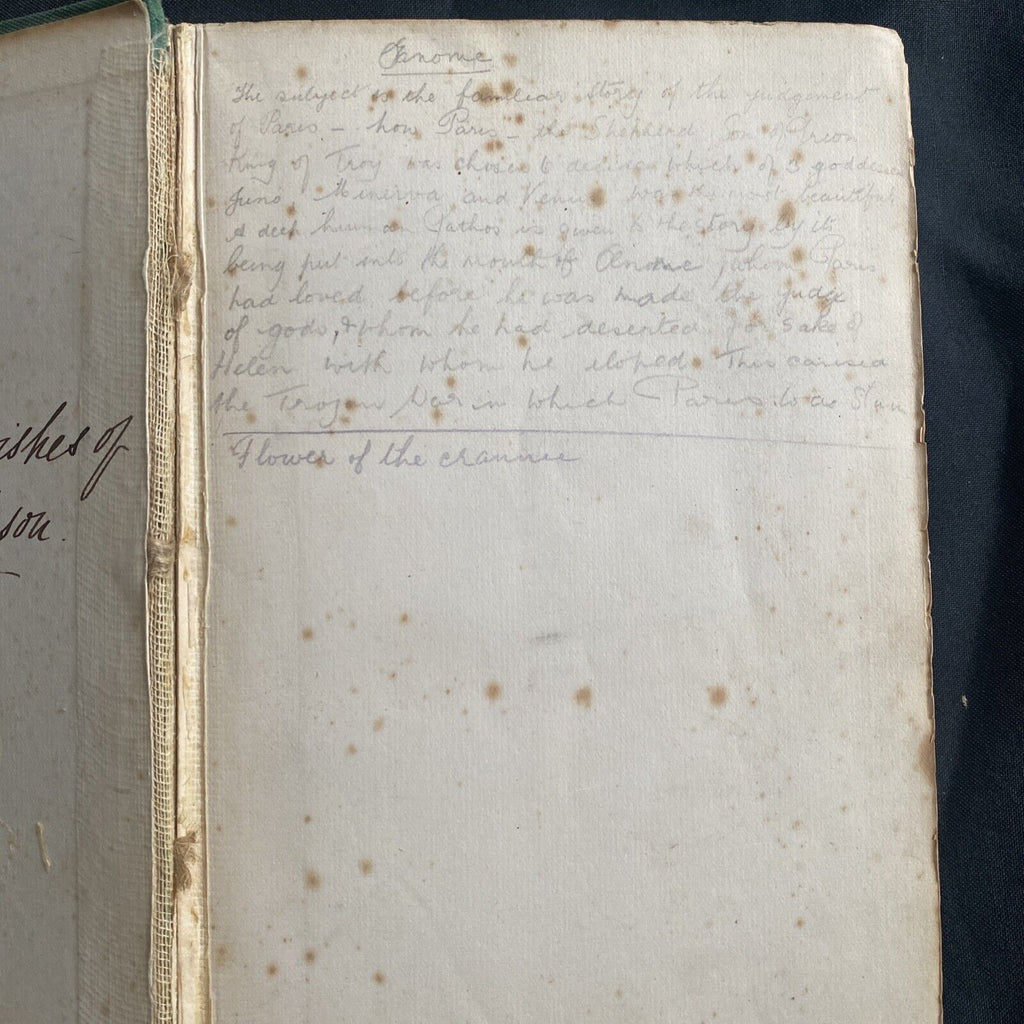 ishes of
son.
Œnone
The subject is the familiar story of the judgement
of Paris - how Paris - the Shepherd Son of
King of Troy was chosen to decide which of 3 goddesses
Juno Minerva and Venus was the most beautiful
A deep human Pathos is given to the story by its
being put into the mouth of Œnone whom Paris
had loved before he was made the judge
of gods, & whom he had deserted for sake of
Helen with whom he eloped. This caused
the Trojan War in which Paris was Slain
Flower of the crannie